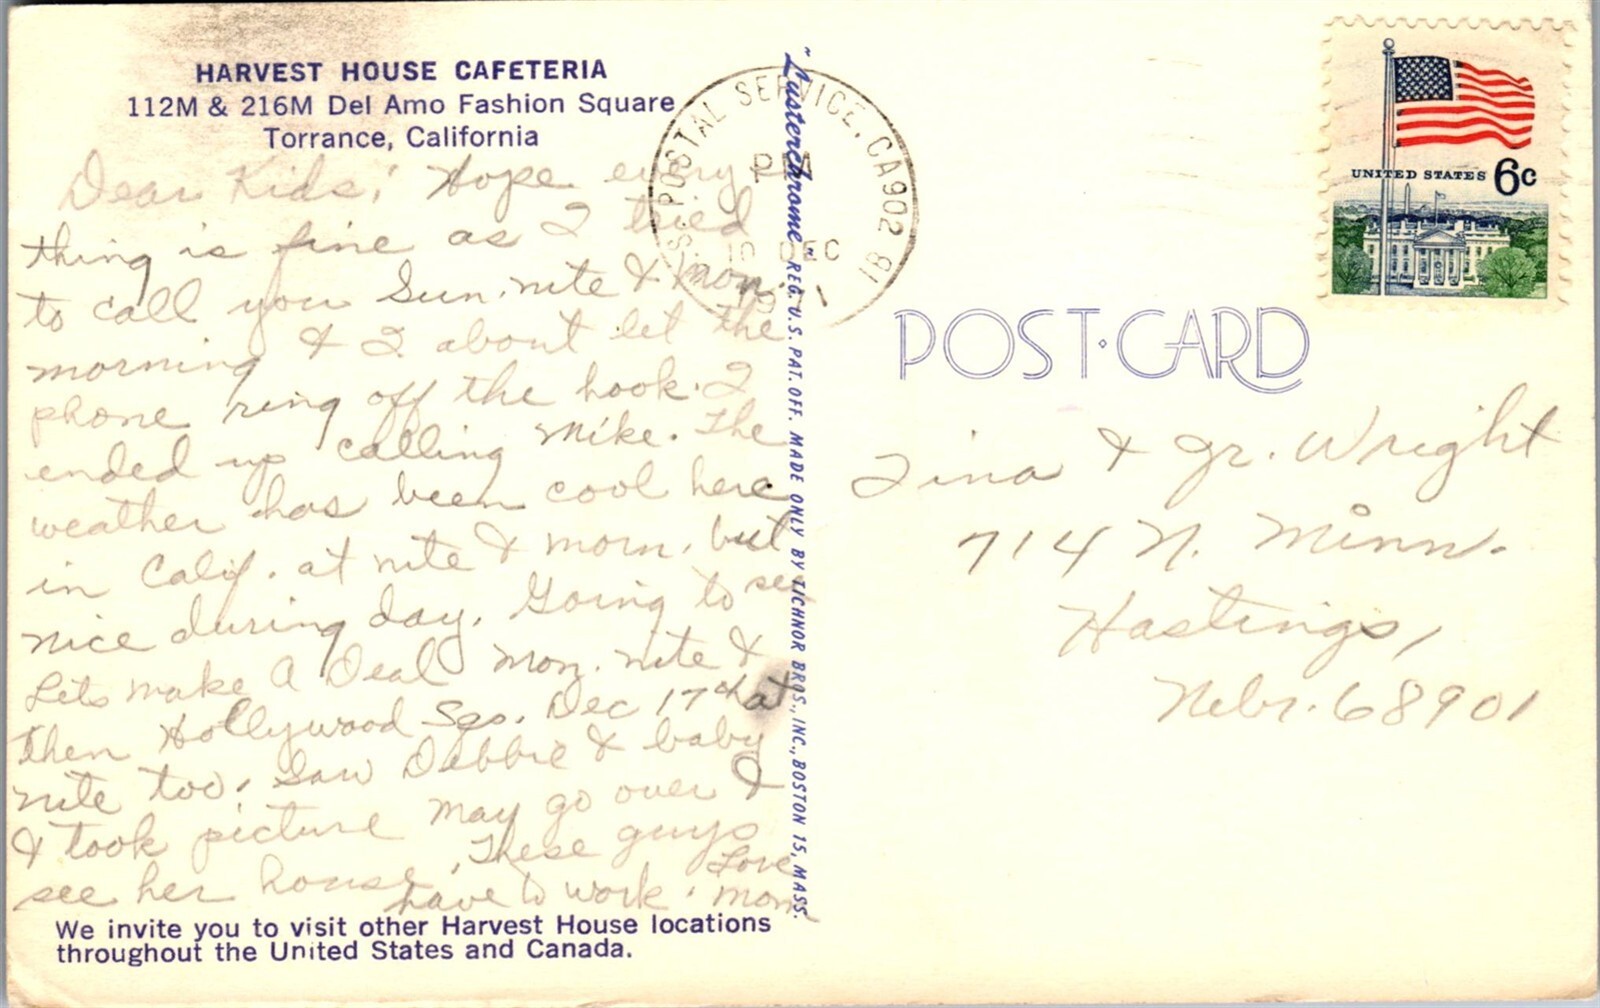 HARVEST HOUSE CAFETERIA
112M & 216M Del Amo Fashion Square
Torrance, California
Dear Kids; Hope every
thing is fine as I tried
to call you Sun. nite & Mon.
morning & I about let the
phone ring off the hook. I
ended up calling Mike. The
weather has been cool here
in Calif. at nite & morn. but
nice during day. Going to see
Lets make A Deal Mon. nite &
then Hollywood Sqs. Dec 17th at
nite too. Saw Debbie & baby
& took picture may go over &
see her house. These guys
have to work. Love
Mom
We invite you to visit other Harvest House locations
throughout the United States and Canada.
"Lusterchrome" REG. U.S. PAT. OFF. MADE ONLY BY TICHNOR BROS., INC., BOSTON 15, MASS.
U.S. POSTAL SERVICE, CA 902 1B
PM
10 DEC
1971
UNITED STATES 6c
POST·CARD
Tina & Jr. Wright
714 N. Minn.
Hastings,
Nebr. 68901